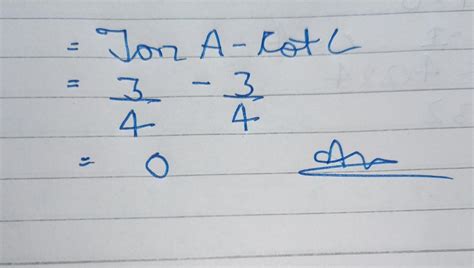 = Tan A - Cot C
= 3/4 - 3/4
= 0 Ans